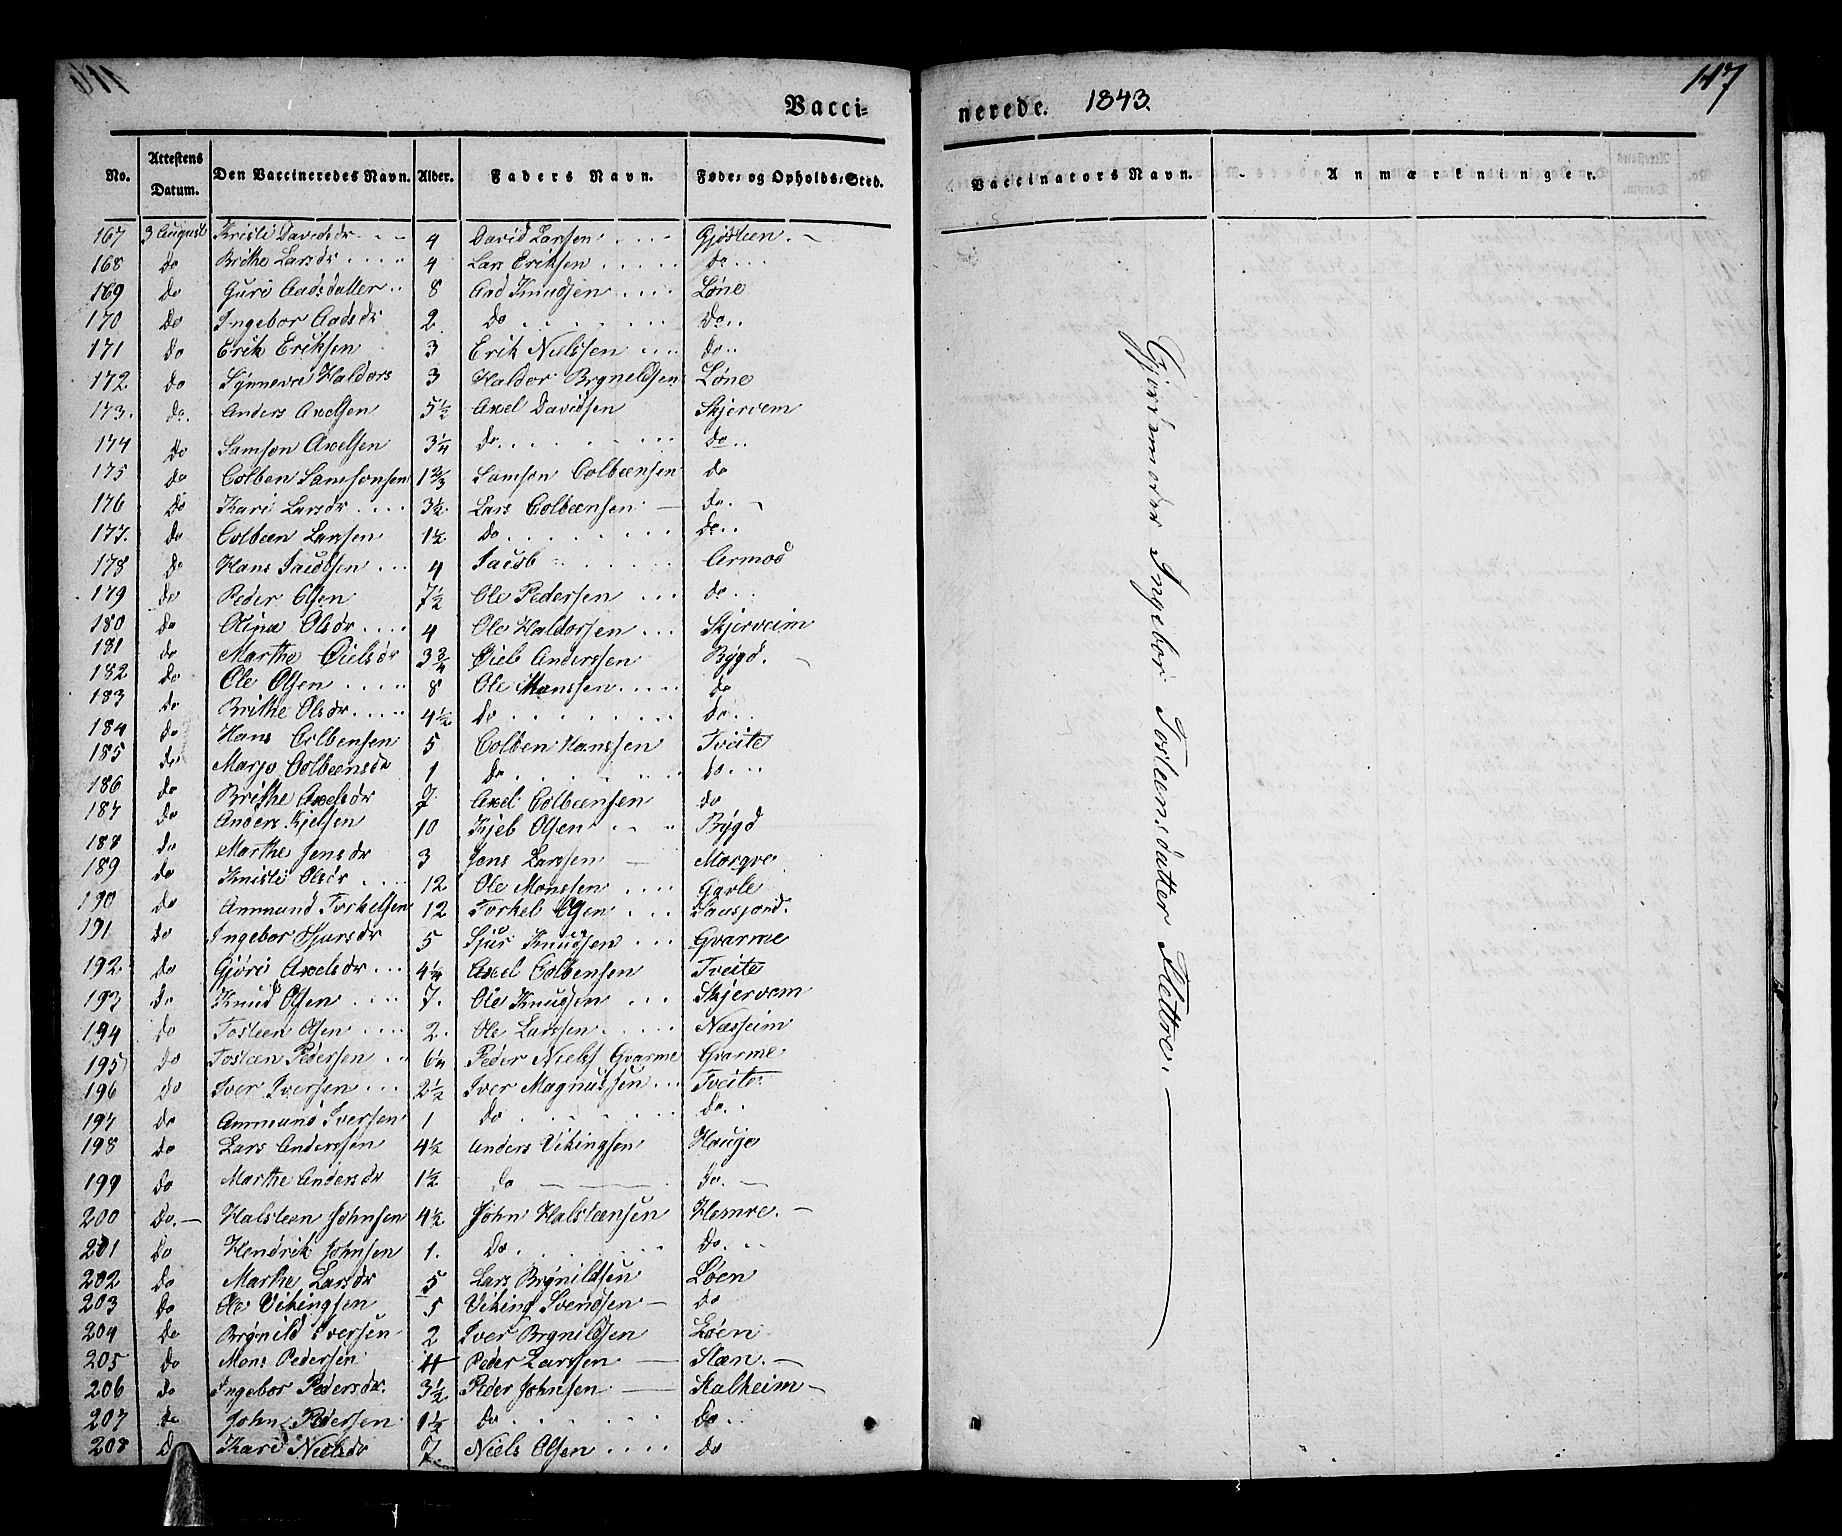 Vacci-
nerede. 1843.
147
No.
Attestens Datum.
Den Vaccineredes Navn.
Alder.
Faders Navn.
Føde- og Opholds-Sted.
Vaccinators Navn.
Anmærkninger.
167 3 August Kristi Davidsdr 4 David Larsen Gjösteen.
168 Do Brithe Larsdr 4 Lars Eriksen do
169 Do Guri Aadsdatter 8 Aad Knudsen Løne
170 Do Ingebor Aadsdr 2 Do Do
171 Do Erik Eriksen 3 Erik Nielssen do
172 do Synneve Haldors 3 Haldor Brynildsen Løne
173. do. Anders Axelsen 5½ Axel Davidsen Skjervem
174 do Samson Axelsen 3¼ do do
175 do Colben Samsonsen 1⅔ Samson Colbeensen do
176 Do Kari Larsdr 3½ Lars Colbeensen do.
177. do Colbeen Larsen 1½ Do Do
178 do Hans Jacobsen 4 Jacob
179 do Peder Olsen 7½ Ole Pedersen do
180 do Olina Olsdr 4 Ole Haldorsen Skjerveim
181 do Marthe 3¾ Anderssen Bÿgd.
182 do Ole Olsen 8 Ole Monssen do
183 do Brithe Olsdr 4½ Do Do
184 do Hans Colbensen 5 Colben Hanssen Tveite
185 do Marjo Colbeensdr 1 Do do
186 do Brithe Axelsdr 7 Axel Colbeensen do
187 do Anders Kjelsen 10 Olsen Bÿgd
188 do Marthe Jensdr 3 Jens Larssen
189 do Kristi Olsdr 12 Ole Monssen
190 do Ammund Torkelsen 12 Torkel Olsen
191 do Ingebor Sjursdr 5 Sjur Knudsen Gvarme
192. do Gjøri Axelsdr 4¼ Axel Colbensen Tveite
193 Do Knud Olsen 7. Ole Knudsen Skjervem
194 do Tosteen Olsen 2. Ole Larssen Næsheim
195 Do Tosteen Pedersen 6¼ Peder Niels Gvarme Gvarme
196 Do Iver Iversen 2½ Iver Magnussen Tveite
197 do Ammund Iversen 1 do do
198 do Lars Anderssen 4½ Anders Vikingsen Hauge
199 Do Marthe Andersdr 1½ do do.
200 Do. Halsteen Johnsen 4½ John Halsteensen Hemre.
201 Do Hendrik Johnsen 1. Do Do.
202 do Marthe Larsdr 5 Lars Brÿnildsen Løen
203 Do Ole Vikingsen 5 Viking Svendsen do
204 do Brÿnild Iversen 2 Iver Brynildsen Løen
205 Do Mons Pedersen 4 Peder Larssen Steen.
206 do Ingebor Pedersdr. 3½ Peder Johnsen Stalheim
207 do John Pedersen 1½ do Do
208 Do Kari Nielsdr 7. Niels Olsen do
Gjordemoder Ingebor Tosteensdatter Flettre.